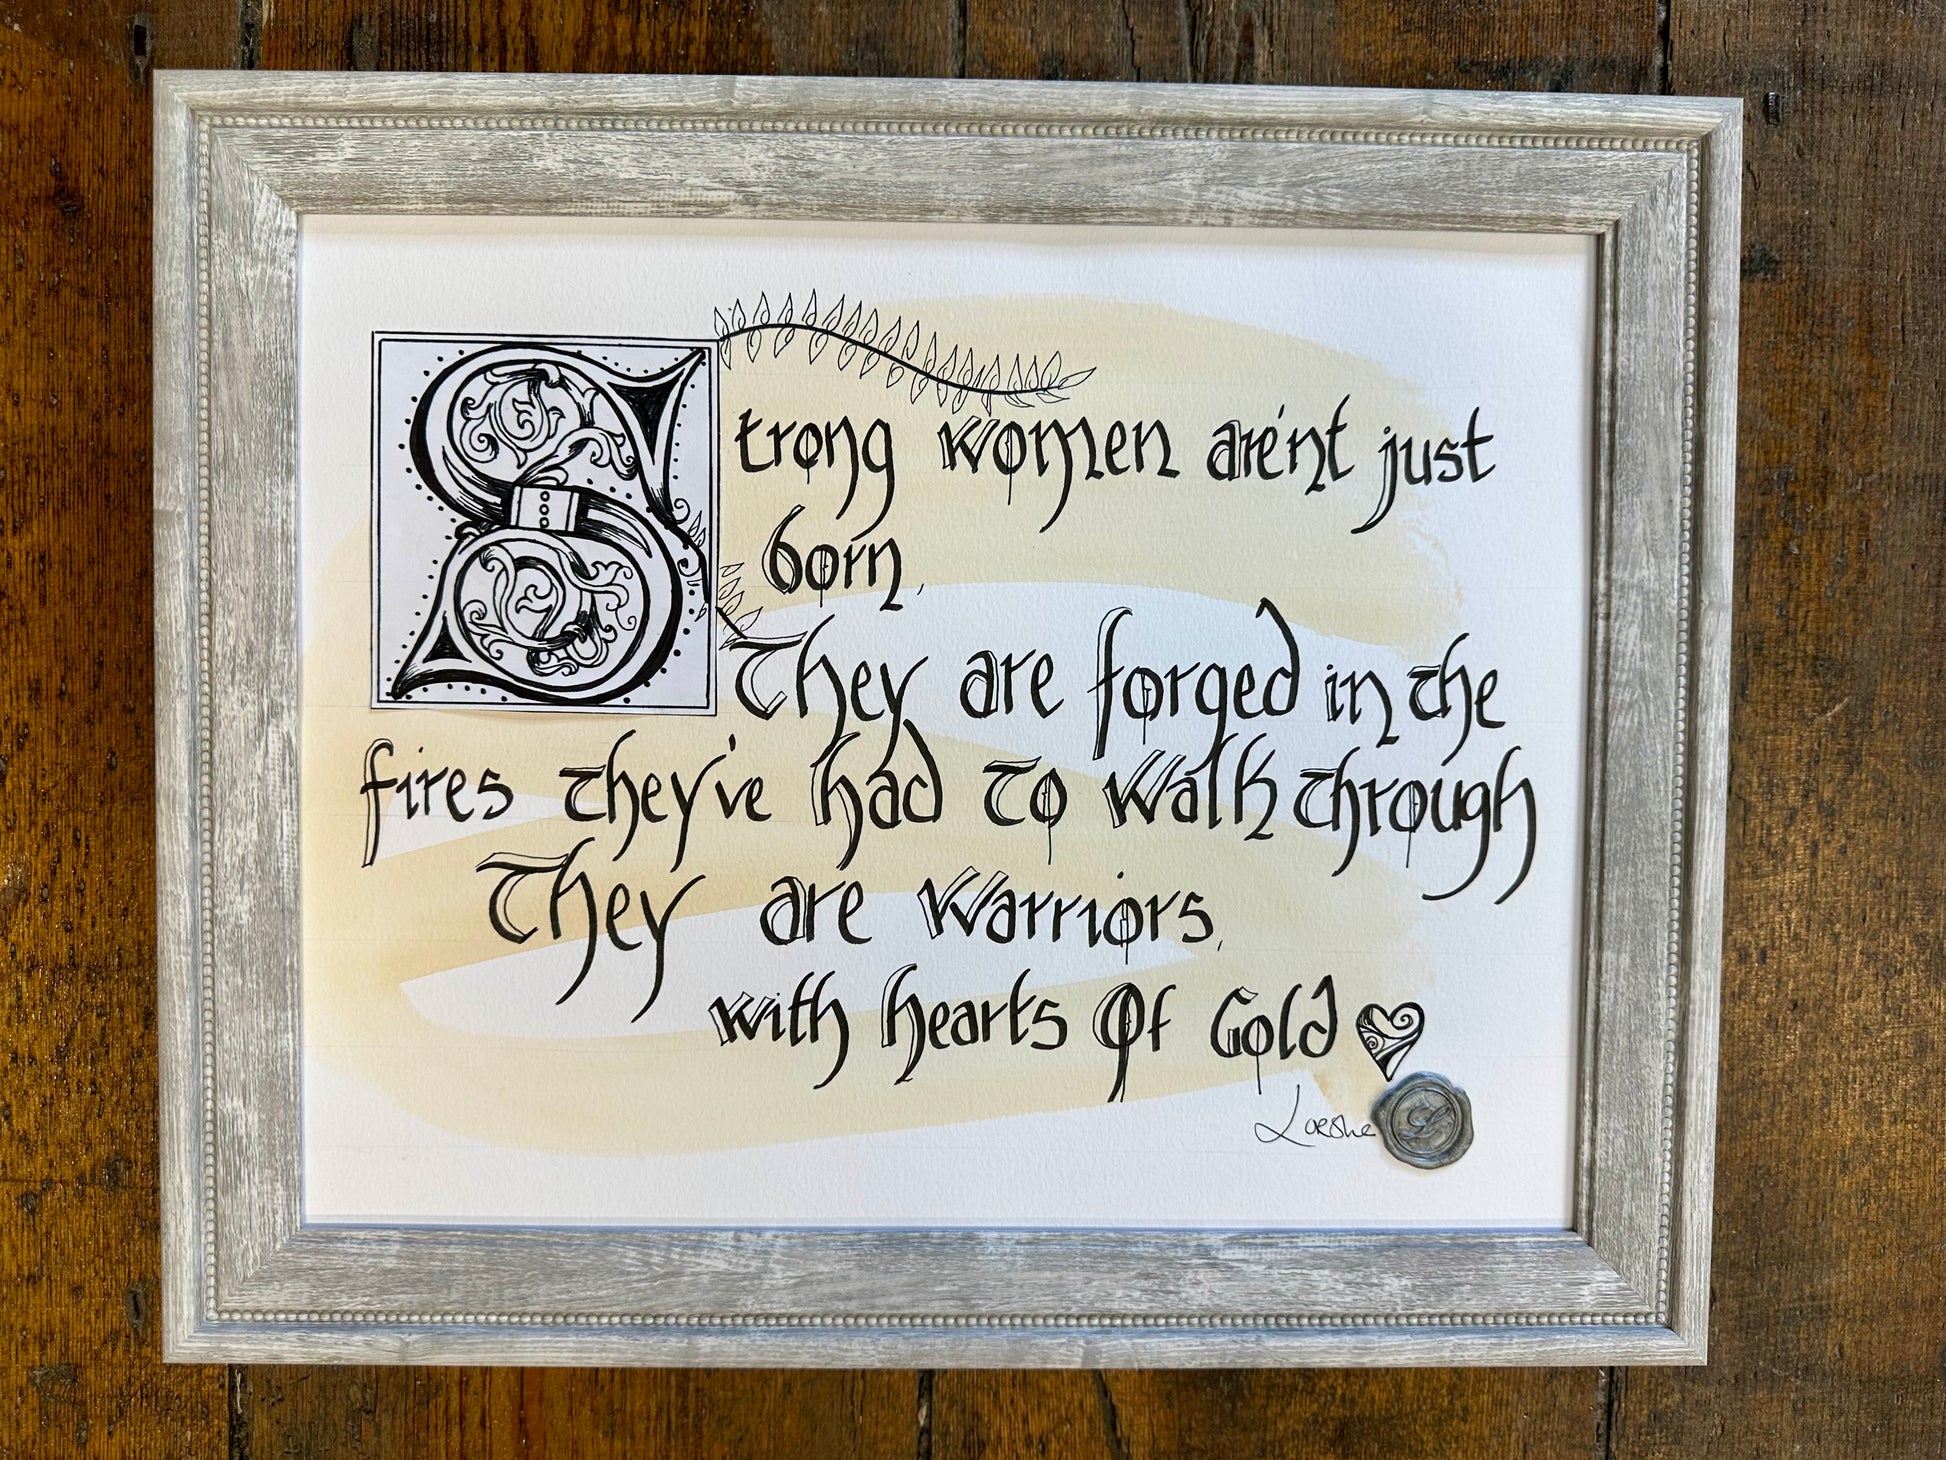 Strong women are'nt just
born,
They are forged in the
fires they've had to walk through
They are warriors,
with hearts Of Gold
Lorshe
L